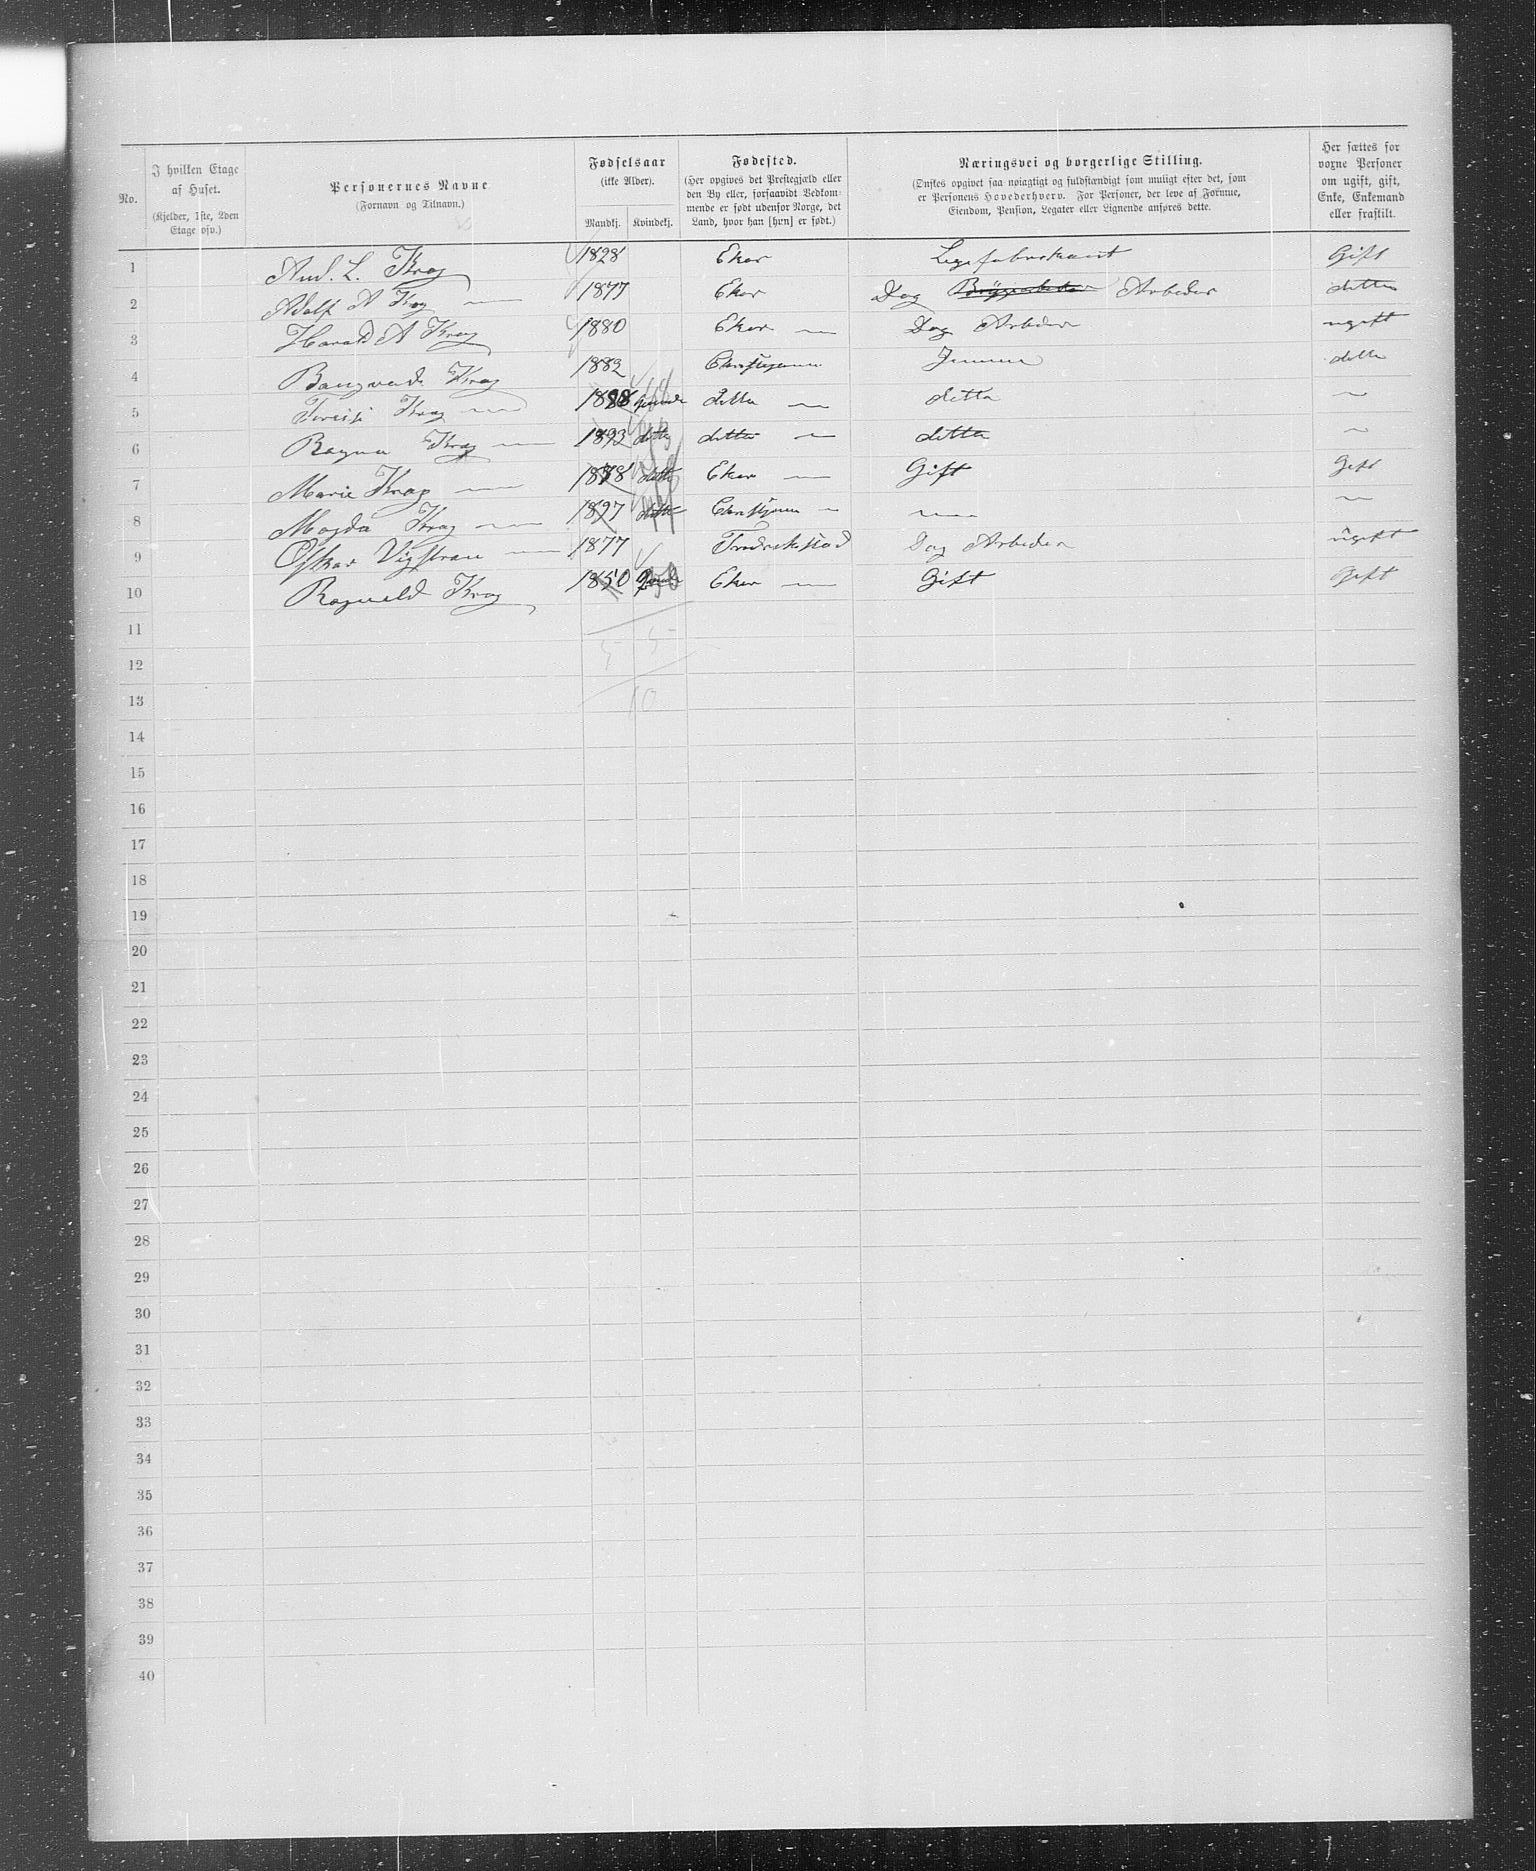 No.
I hvilken Etage af Huset.
(Kjelder, 1ste, 2den Etage osv.)
Personernes Navne
(Fornavn og Tilnavn.)
Fødselsaar
(ikke Alder).
Mandkj. Kvindekj.
Fødested.
(Her opgives det Prestegjæld eller den By eller, forsaavidt Vedkommende er født udenfor Norge, det Land, hvor han [hun] er født.)
Næringsvei og borgerlige Stilling.
(Ønskes opgivet saa nøiagtigt og fuldstændigt som muligt efter det, som er Personens Hovederhverv. For Personer, der leve af Formue, Eiendom, Pension, Legater eller Lignende anføres dette.
Her sættes for voxne Personer om ugift, gift, Enke, Enkemand eller fraskilt.
1 And. L. Krog 1828 Eker Gift
2 Adolf A Krog 1877 Eker Dag Arbeder ditto
3 Harald A Krog 1880 Eker Dag Arbeder ugift
4 Krog 1882 ditto
5 Krog 1888 Qvinde 88 ditto ditto
6 Ragna Krog 1893 ditto 93 ditto ditto
7 Marie Krog 1878 ditto Eker Gift Gift
8 Magda Krog 1897 ditto
9 Oskar 1877 Fredrekstad Dag Arbeder ugift
10 Ragneld Krog 1850 Qvinde 50 Eker Gift Gift
11
12 5 5
13 10
14
15
16
17
18
19
20
21
22
23
24
25
26
27
28
29
30
31
32
33
34
35
36
37
38
39
40